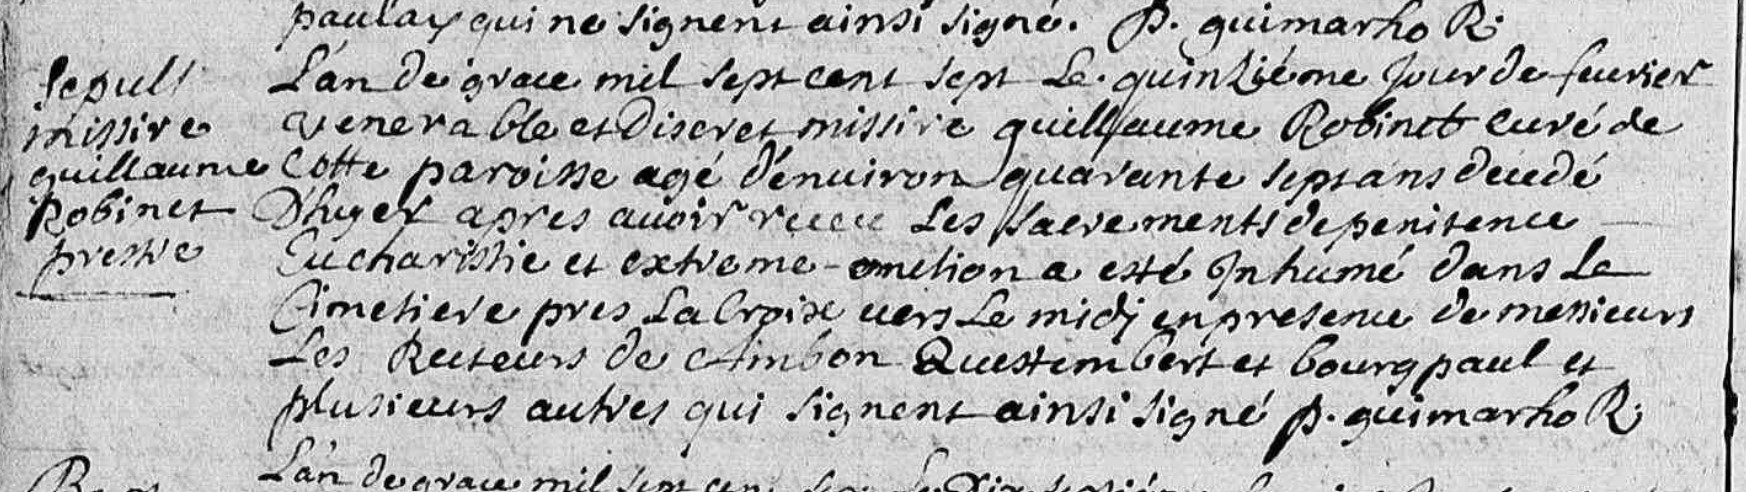 paulay qui ne signent ainsi signé. p. guimarho R.
Sepult
missire
guillaume
Robinet
prestre
L'an de grace mil sept cent sept Le quinziéme Jour de feurier
venerable et Discret missire guillaume Robinet curé de
Cette paroisse agé d'énuiron quarante sept ans decedé
D'hyer apres auoir receu Les sacrements de penitence
Eucharistie et extreme-onction a esté Inhumé dans Le
Cimetiere pres La Croix uers Le midj en presence de messieurs
Les Recteurs de Ambon Questembert et bourgpaul et
plusieurs autres qui signent ainsi signé p. guimarho R.
L'an de grace mil sept cent sept Le Dix septiéme